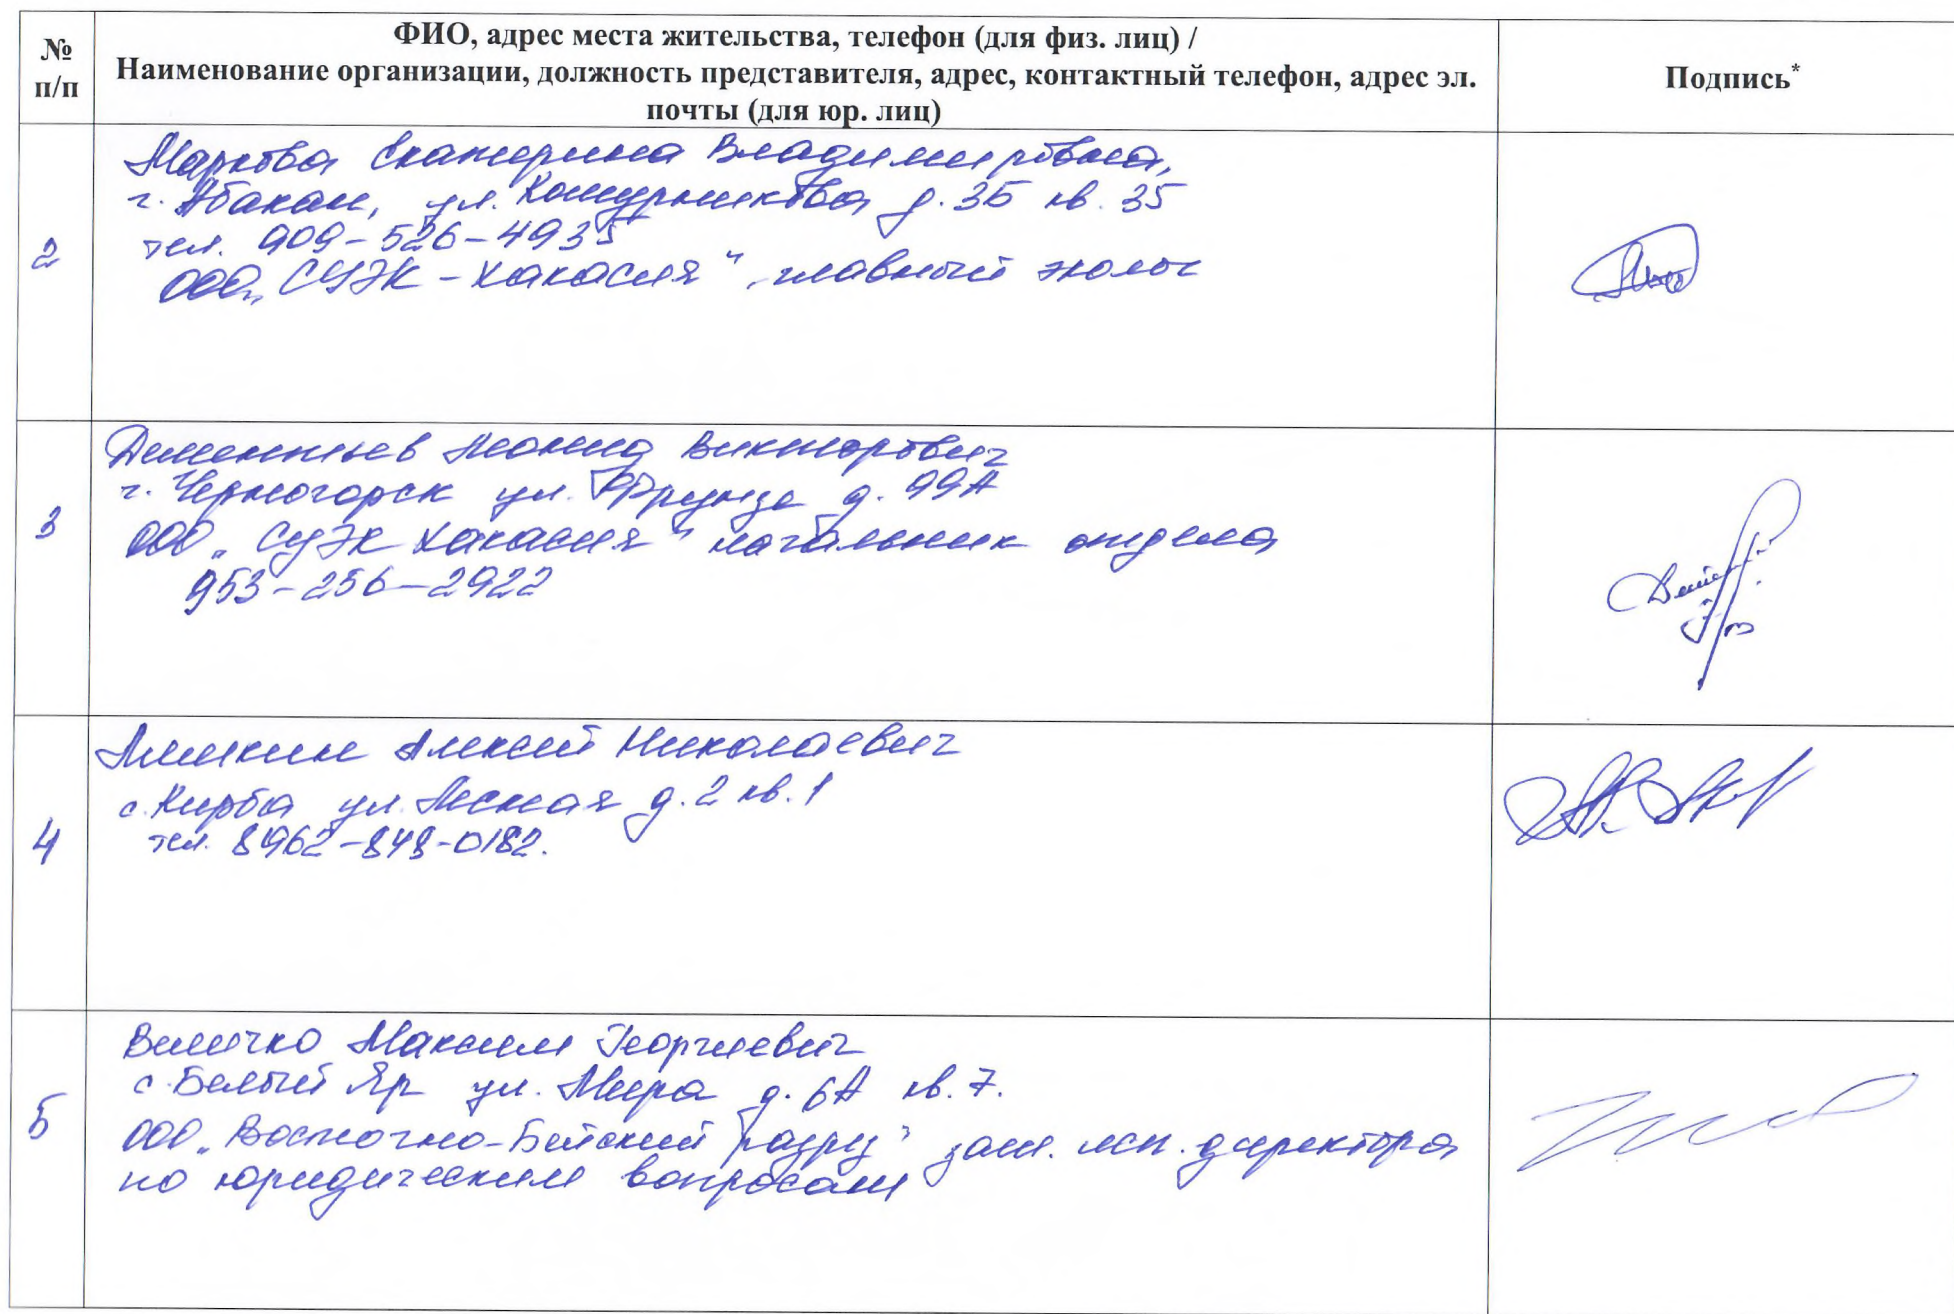 № п/п
ФИО, адрес места жительства, телефон (для физ. лиц) /
Наименование организации, должность представителя, адрес, контактный телефон, адрес эл.
почты (для юр. лиц)
Подпись*
2
Маркова Екатерина Владимировна,
г. Абакан, ул. Кошурникова д. 3Б кв. 35
тел. 909-526-4935
ООО „СУЭК-Хакасия", главный эколог
3
Дементьев Леонид Викторович
г. Черногорск ул. Фрунзе д. 99А
ООО „СУЭК Хакасия" начальник отдела
953-256-2922
4
Алексей Николаевич
с. Кирба ул. Лесная д. 2 кв. 1
тел. 8962-848-0182.
5
Величко Максим Георгиевич
с. Белый Яр ул. Мира д. 6А кв. 7.
ООО „Восточно-Бейский разрез" зам. исп. директора
по юридическим вопросам